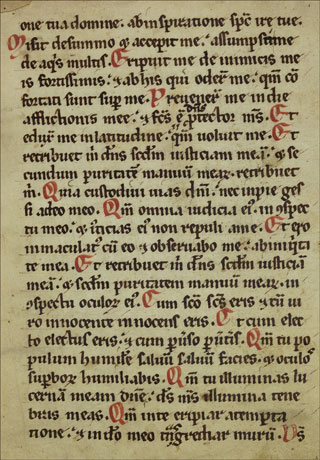 one tua domine. ab inspiratione sp̄c ire tue.
Misit de summo ⁊ accepit me. assumpsit me
de aq̄s multis. Eripuit me de inimicis me
is fortissimis. ⁊ ab his qui oder̄t me. qm̄ cō
fortati sunt sup me. Prevener̄t me in die
afflictionis mee. ⁊ fc̄s ē dn̄s ꝓtector ms̄. Et
eduxit me in latitudinē. qm̄ voluit me. Et
retribuet m̄ dn̄s scdm̄ iusticiam meā. ⁊ se
cundum puritatē manuū mear̄. retribuet
m̄. Quia custodivi vias dn̄i. nec impie ges
si a deo meo. Qm̄ omnia iudicia ei᷒. in ↄspec
tu meo. ⁊ iusticias ei᷒ non repuli a me. Et ero
immaculat᷒ cū eo ⁊ observabo me. ab iniq̄ta
te mea. Et retribuet m̄ dn̄s scdm̄ iusticiā
meā. ⁊ scdm̄ puritatem manuū mear̄. in
ↄspectu oculor̄ ei᷒. Cum sc̄o sc̄s eris ⁊ cū vi
ro innocente innocens eris. Et cum elec
to electus eris. ⁊ cum ꝑv̄so ꝑv̄tis. Qm̄ tu po
pulum humilē salvū salvū facies. ⁊ oculos
suꝑbor̄ humiliabis. Qm̄ tu illuminas lu
cernā meam dn̄e. ds̄ ms̄ illumina tene
bras meas. Qm̄ in te eripiar a tempta
tione. ⁊ in dō meo tn̄sgrediar murū. Ds̄